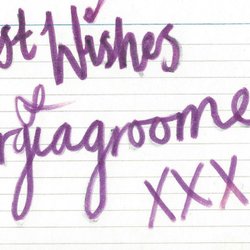 st Wishes
rgiagroome
xxx